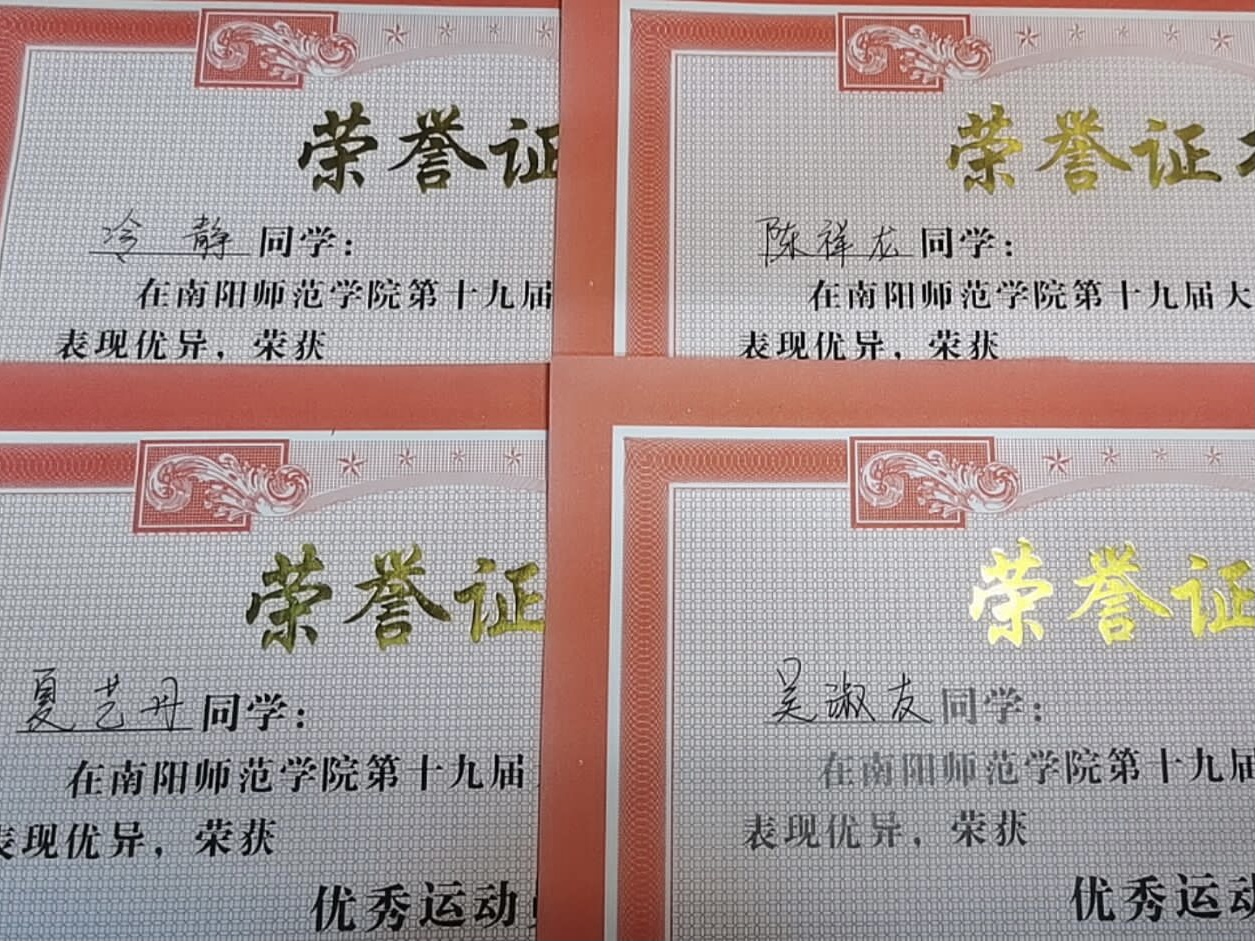 荣誉证
冷静同学：
在南阳师范学院第十九届
表现优异，荣获
荣誉证
陈祥龙同学：
在南阳师范学院第十九届大
表现优异，荣获
荣誉证
夏艺丹同学：
在南阳师范学院第十九届
表现优异，荣获
优秀运动
荣誉证
吴淑友同学：
在南阳师范学院第十九届
表现优异，荣获
优秀运动